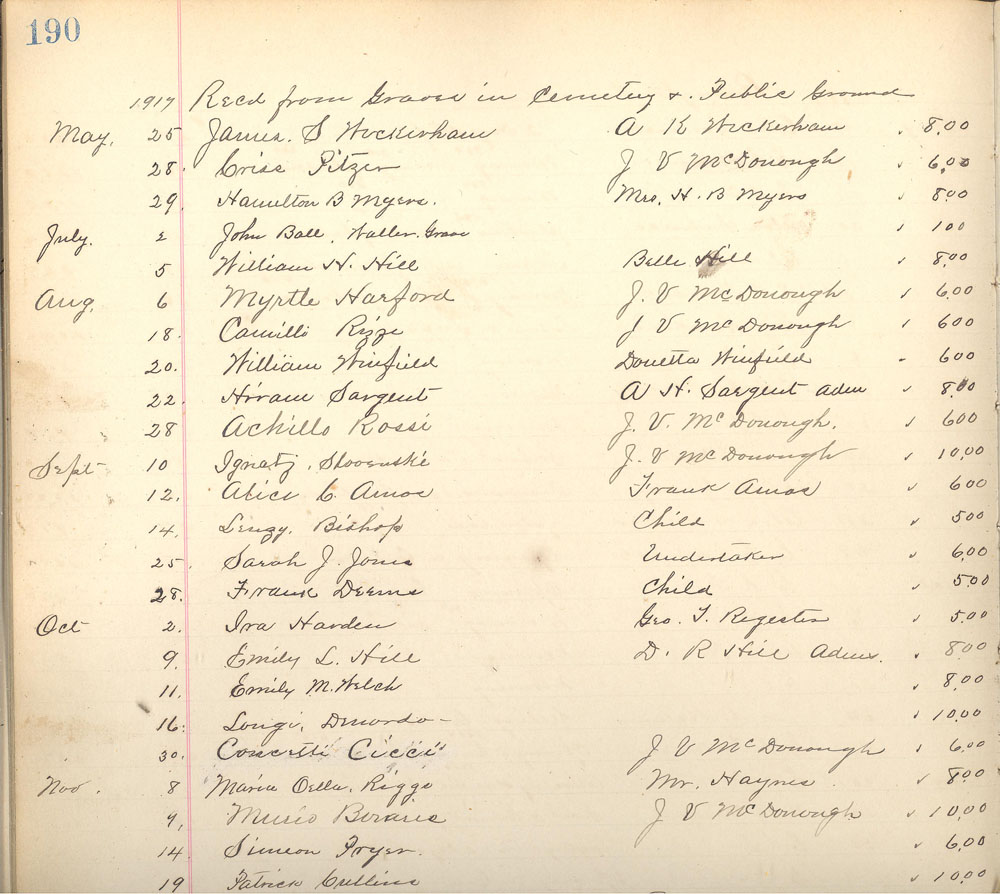 190
1917 Recd from Graves in Cemetery & Public Ground
May. 25 James. S Wickerham A K Wickerham 8.00
28. Criss Pitzer J V McDonough 6.00
29. Hamilton B Myers. Mrs. H. B Myers 8.00
July. 2 John Ball, Grave 1 00
5 William H. Hill Belle Hill 8.00
Aug. 6 Myrtle Harford J. V McDonough 6.00
18. Camillo Rizzi J V McDonough 6 00
20. William Winfield Donetta Winfield 6 00
22. Hiram Sargent A H. Sargent adm 8.00
28 Achillo Rossi J. V. McDonough. 6 00
Sept 10 Ignatz. Slovenski J. V McDonough 10.00
12. Alice C. Amos Frank Amos 6 00
14. Lenzy. Bishop Child 5 00
25. Sarah J. Jones Undertaker 6.00
28. Frank Deems Child 5.00
Oct 2. Ira Harden Geo. T. Register 5.00
9. Emily L. Hill D. R Hill Admr. 8.00
11. Emily M. Welch 8.00
16. 10.00
30. Concetti Cicci J V McDonough 6.00
Nov. 8 Maria Oella. Riggs Mr. Haynes 8.00
9. J V McDonough 10.00
14. Simeon Fryer. 6.00
19 Patrick Cullins 10.00